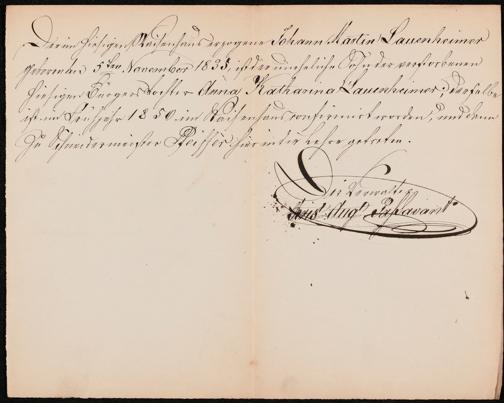 Der im hiesigen Waisenhaus erzogene Johann Martin Lauenheimer
geboren den 5ten November 1835, ist der uneheliche Sohn der verstorbenen
hiesigen Bürgerstochter Anna Katharina Lauenheimer; derselbe
ist im Frühjahr 1850 im Waisenhaus confirmirt worden, und dann
zu Schneidermeister Pfeiffer hier in die Lehre getreten.
Der Verwalter
Augt Passavant